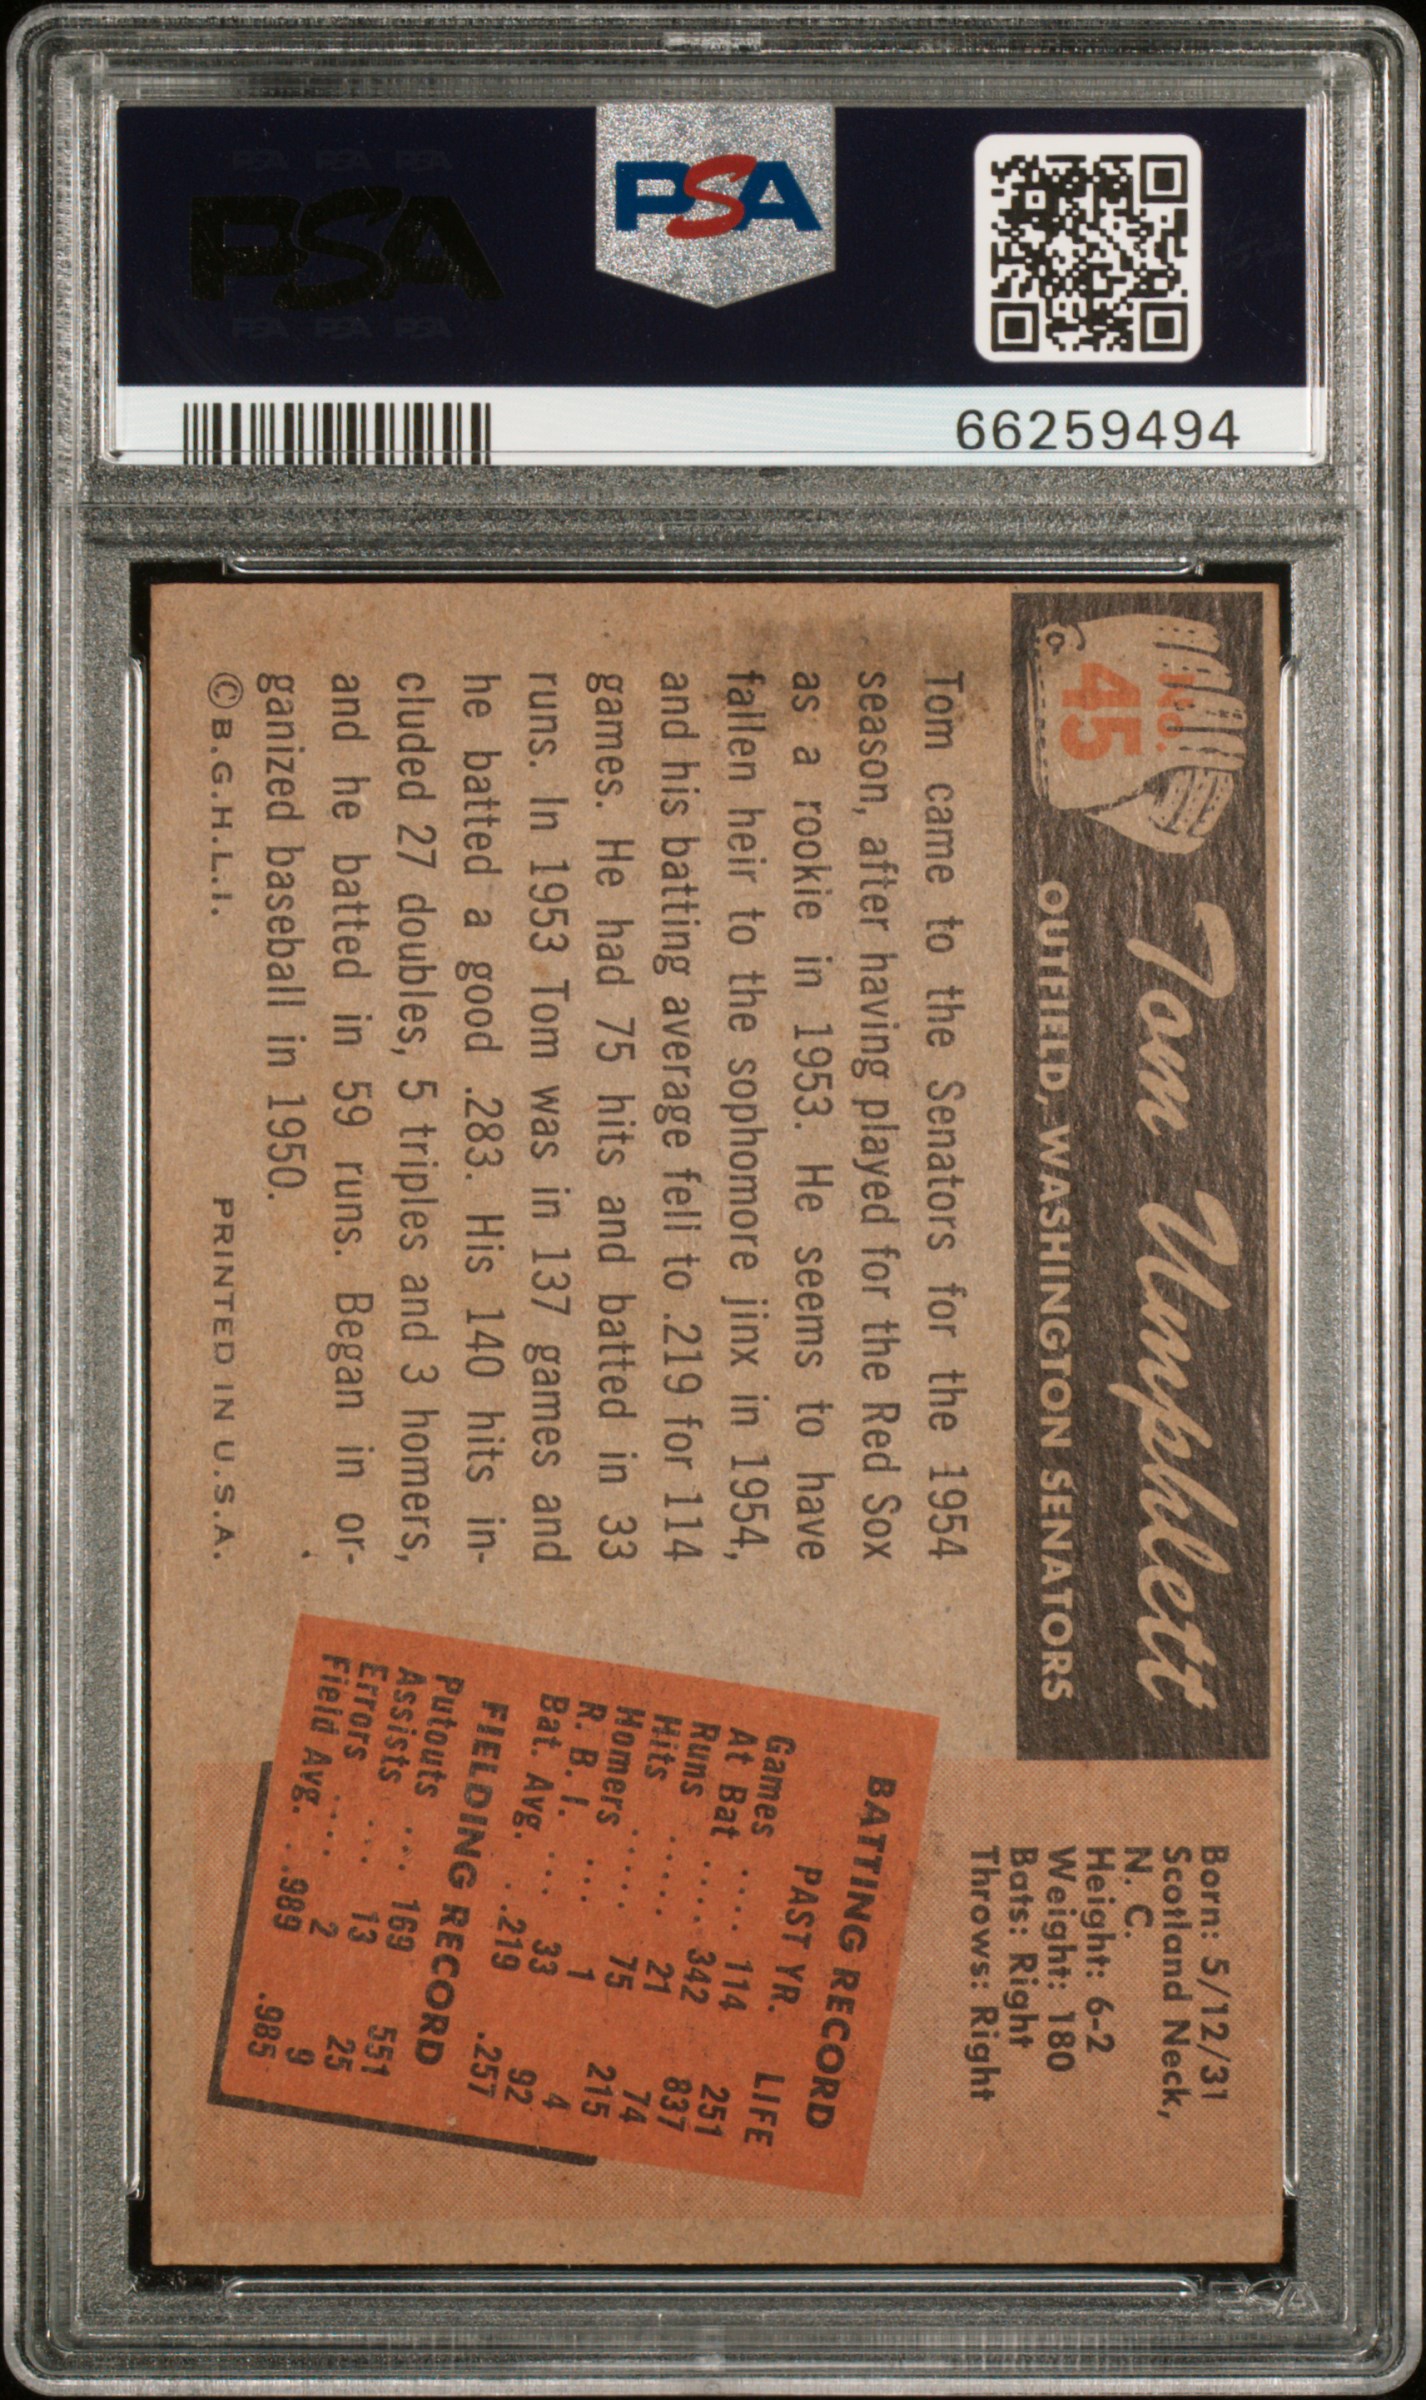 PSA PSA PSA
PSA
PSA PSA PSA
PSA
66259494
No.
45
Tom Umphlett
OUTFIELD, WASHINGTON SENATORS
Tom came to the Senators for the 1954
season, after having played for the Red Sox
as a rookie in 1953. He seems to have
fallen heir to the sophomore jinx in 1954,
and his batting average fell to .219 for 114
games. He had 75 hits and batted in 33
runs. In 1953 Tom was in 137 games and
he batted a good .283. His 140 hits in-
cluded 27 doubles, 5 triples and 3 homers,
and he batted in 59 runs. Began in or-
ganized baseball in 1950.
© B.G.H.L.I. PRINTED IN U.S.A.
Born: 5/12/31
Scotland Neck,
N. C.
Height: 6-2
Weight: 180
Bats: Right
Throws: Right
BATTING RECORD
PAST YR. LIFE
Games .... 114 251
At Bat .... 342 837
Runs ..... 21 74
Hits ..... 75 215
Homers ... 1 4
R. B. I. ... 33 92
Bat. Avg. . .219 .257
FIELDING RECORD
Putouts ... 169 551
Assists ... 13 25
Errors .... 2 9
Field Avg. . .989 .985
PSA